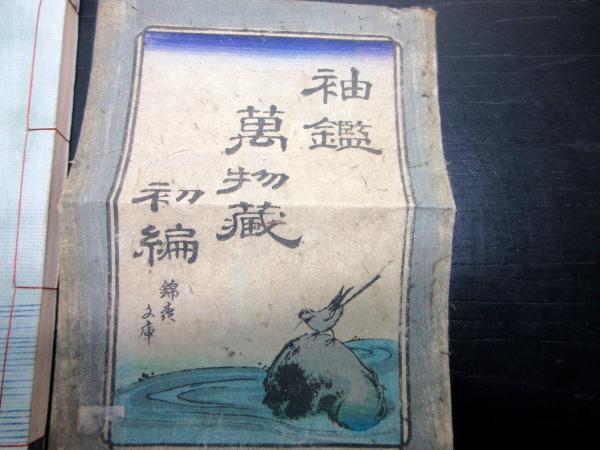 袖鑑
萬物藏
初編
錦森文庫